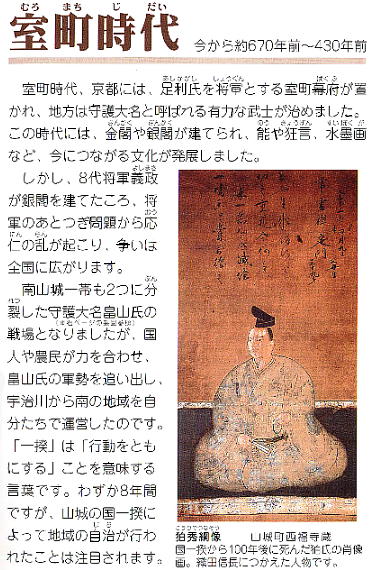 室町時代
今から約670年前〜430年前
室町時代、京都には、足利氏を将軍とする室町幕府が置
かれ、地方は守護大名と呼ばれる有力な武士が治めました。
この時代には、金閣や銀閣が建てられ、能や狂言、水墨画
など、今につながる文化が発展しました。
しかし、8代将軍義政
が銀閣を建てたころ、将
軍のあとつぎ問題から応
仁の乱が起こり、争いは
全国に広がります。
南山城一帯も2つに分
裂した守護大名畠山氏の
戦場となりましたが、国
人や農民が力を合わせ、
畠山氏の軍勢を追い出し、
宇治川から南の地域を自
分たちで運営したのです。
「一揆」は「行動をとも
にする」ことを意味する
言葉です。わずか8年間
ですが、山城の国一揆に
よって地域の自治が行わ
れたことは注目されます。
狛秀綱像 山城町西福寺蔵
国一揆から100年後に死んだ狛氏の肖像
画。織田信長につかえた人物です。